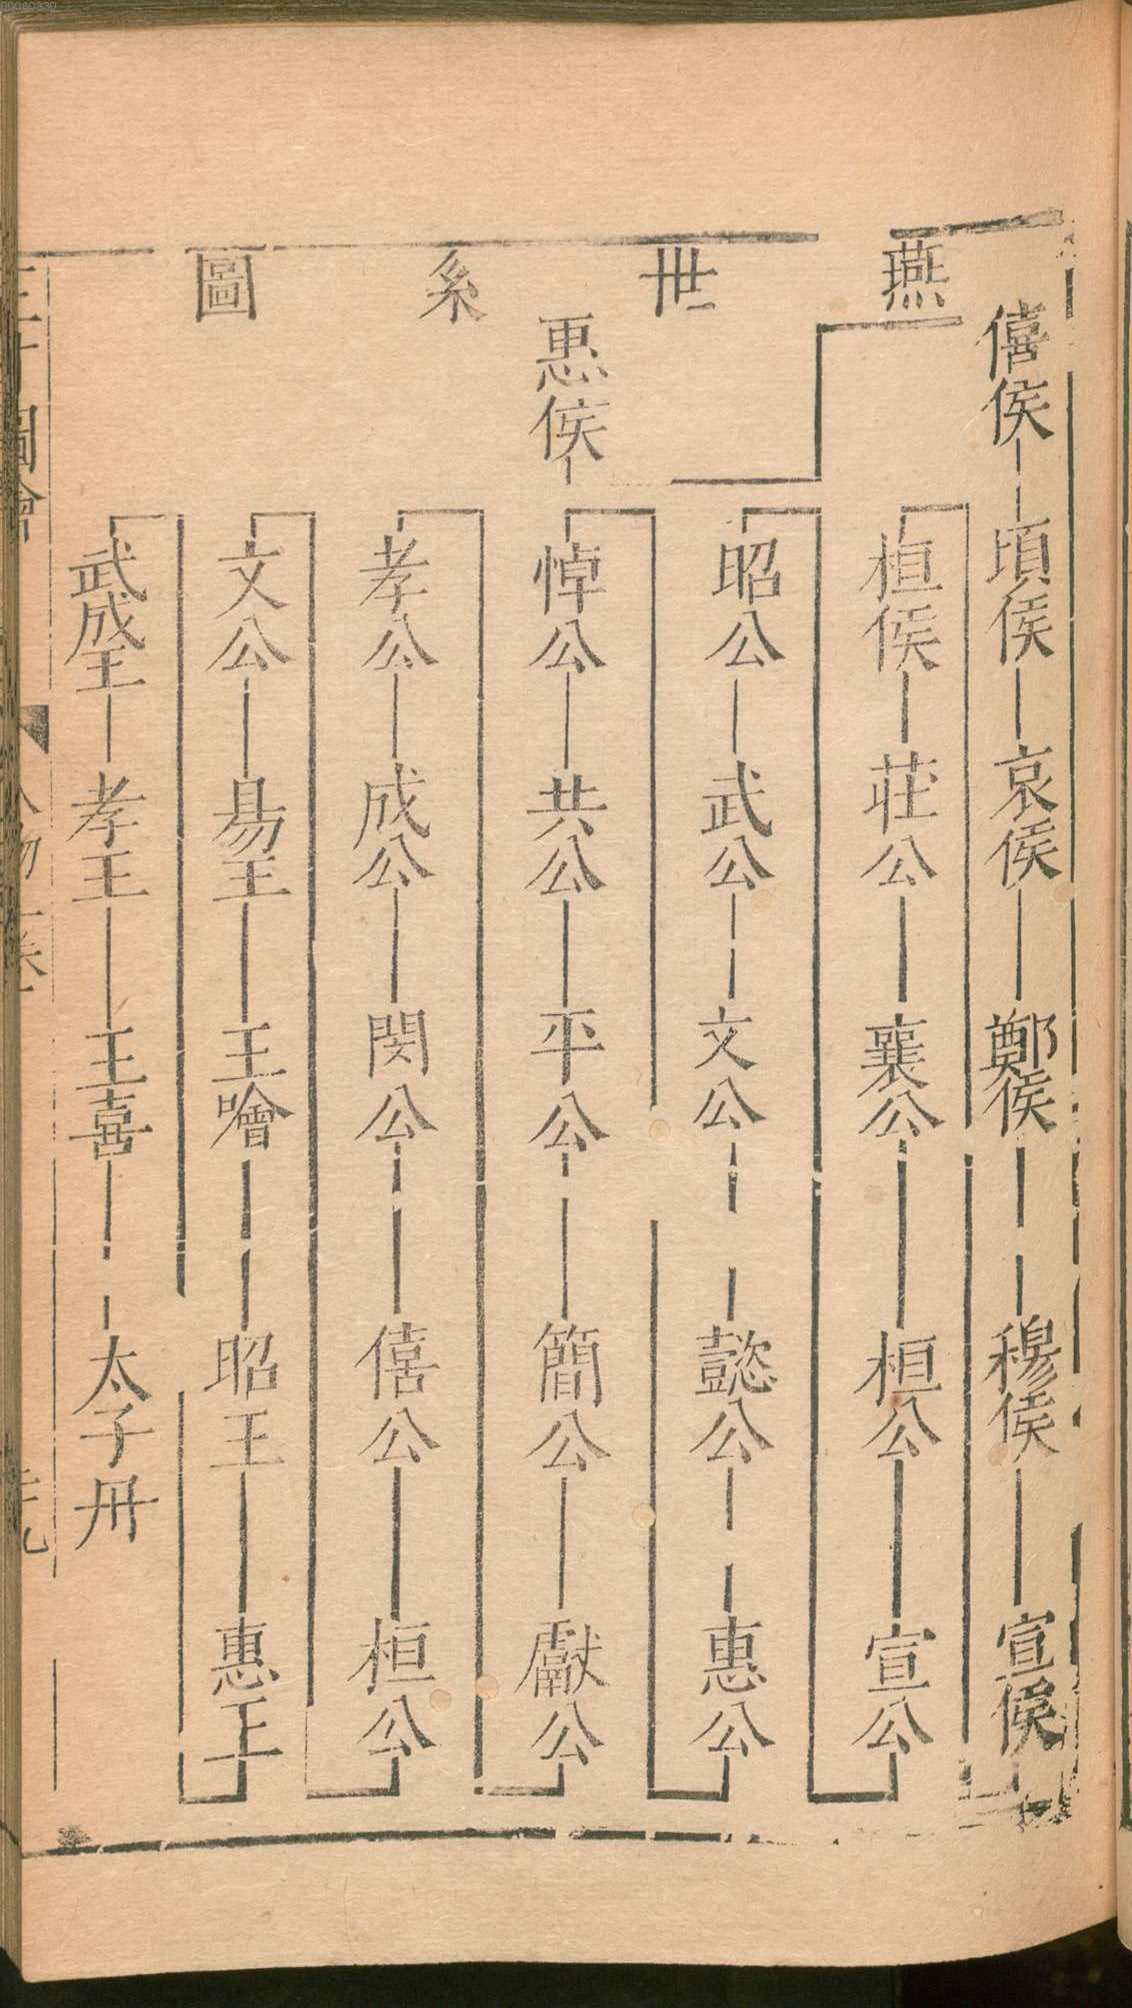 燕世系圖
惠侯
僖侯
頃侯
哀侯
鄭侯
穆侯
宣侯
桓侯
莊公
襄公
桓公
宣公
昭公
武公
文公
懿公
惠公
悼公
共公
平公
簡公
獻公
孝公
成公
閔公
僖公
桓公
文公
易王
王噲
昭王
惠王
武成王
孝王
王喜
太子丹
圖會